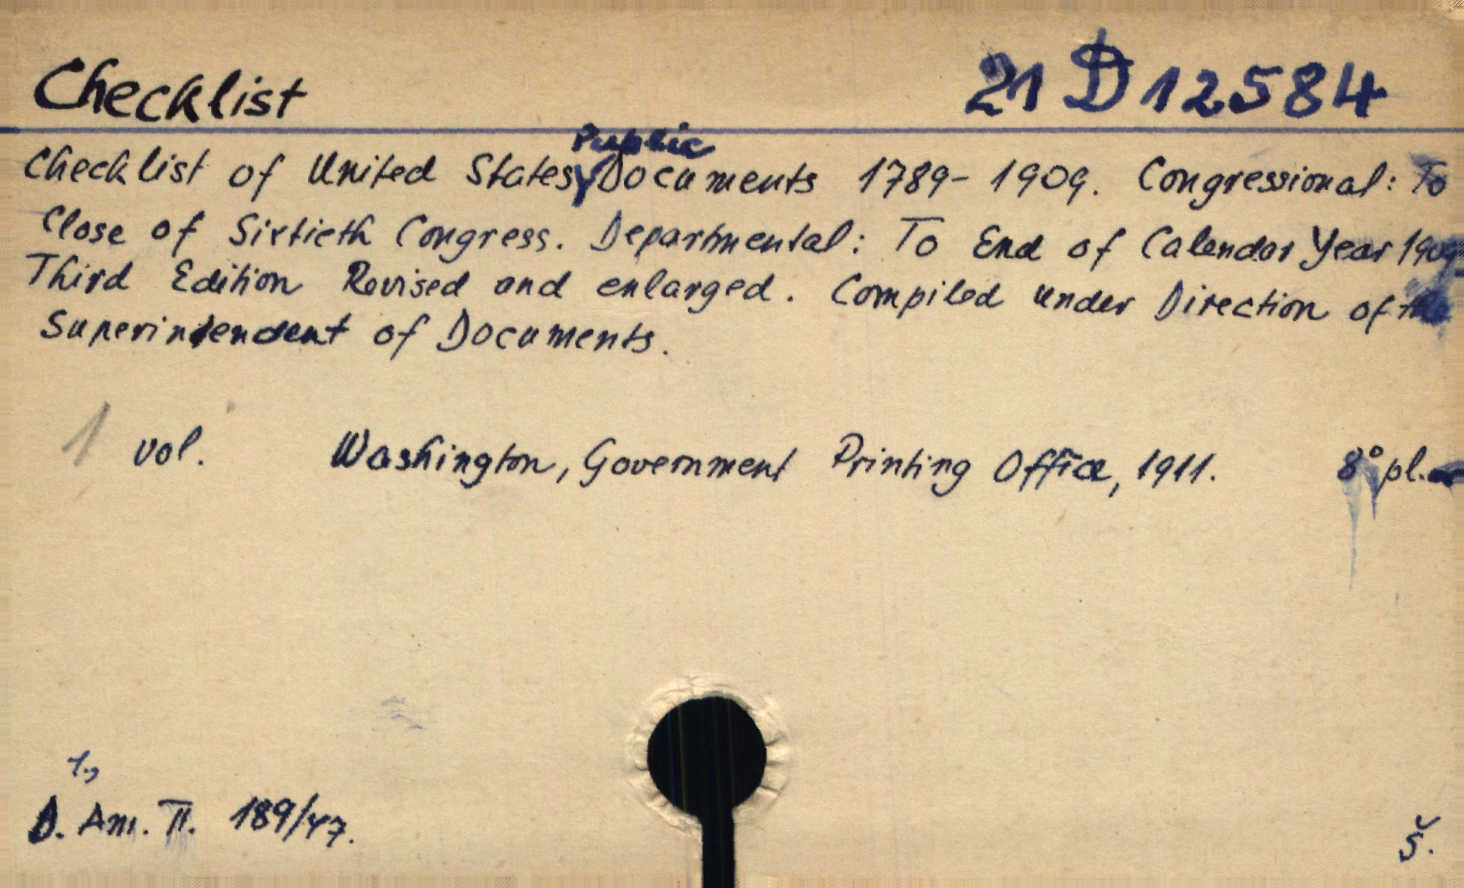 Checklist 21 D 12584
Checklist of United States Public Documents 1789-1909. Congressional: To
Close of Sixtieth Congress. Departmental: To End of Calendar Year 1909
Third Edition Revised and enlarged. Compiled under Direction of the
Superintendent of Documents.
1 vol. Washington, Government Printing Office, 1911. 8° pl.
1.,
D. Am. II. 189/47. š.